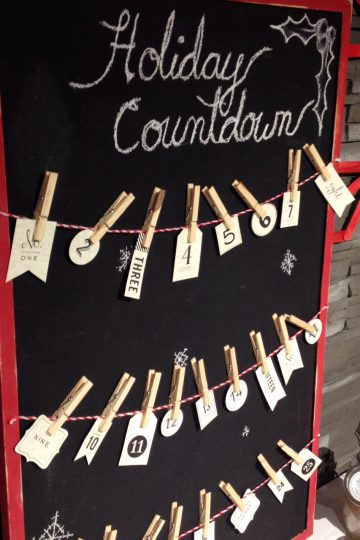 Holiday
Countdown
No. ONE
2
THREE
4
5
6
7
eight
NINE
10
11
12
13
14
24
25